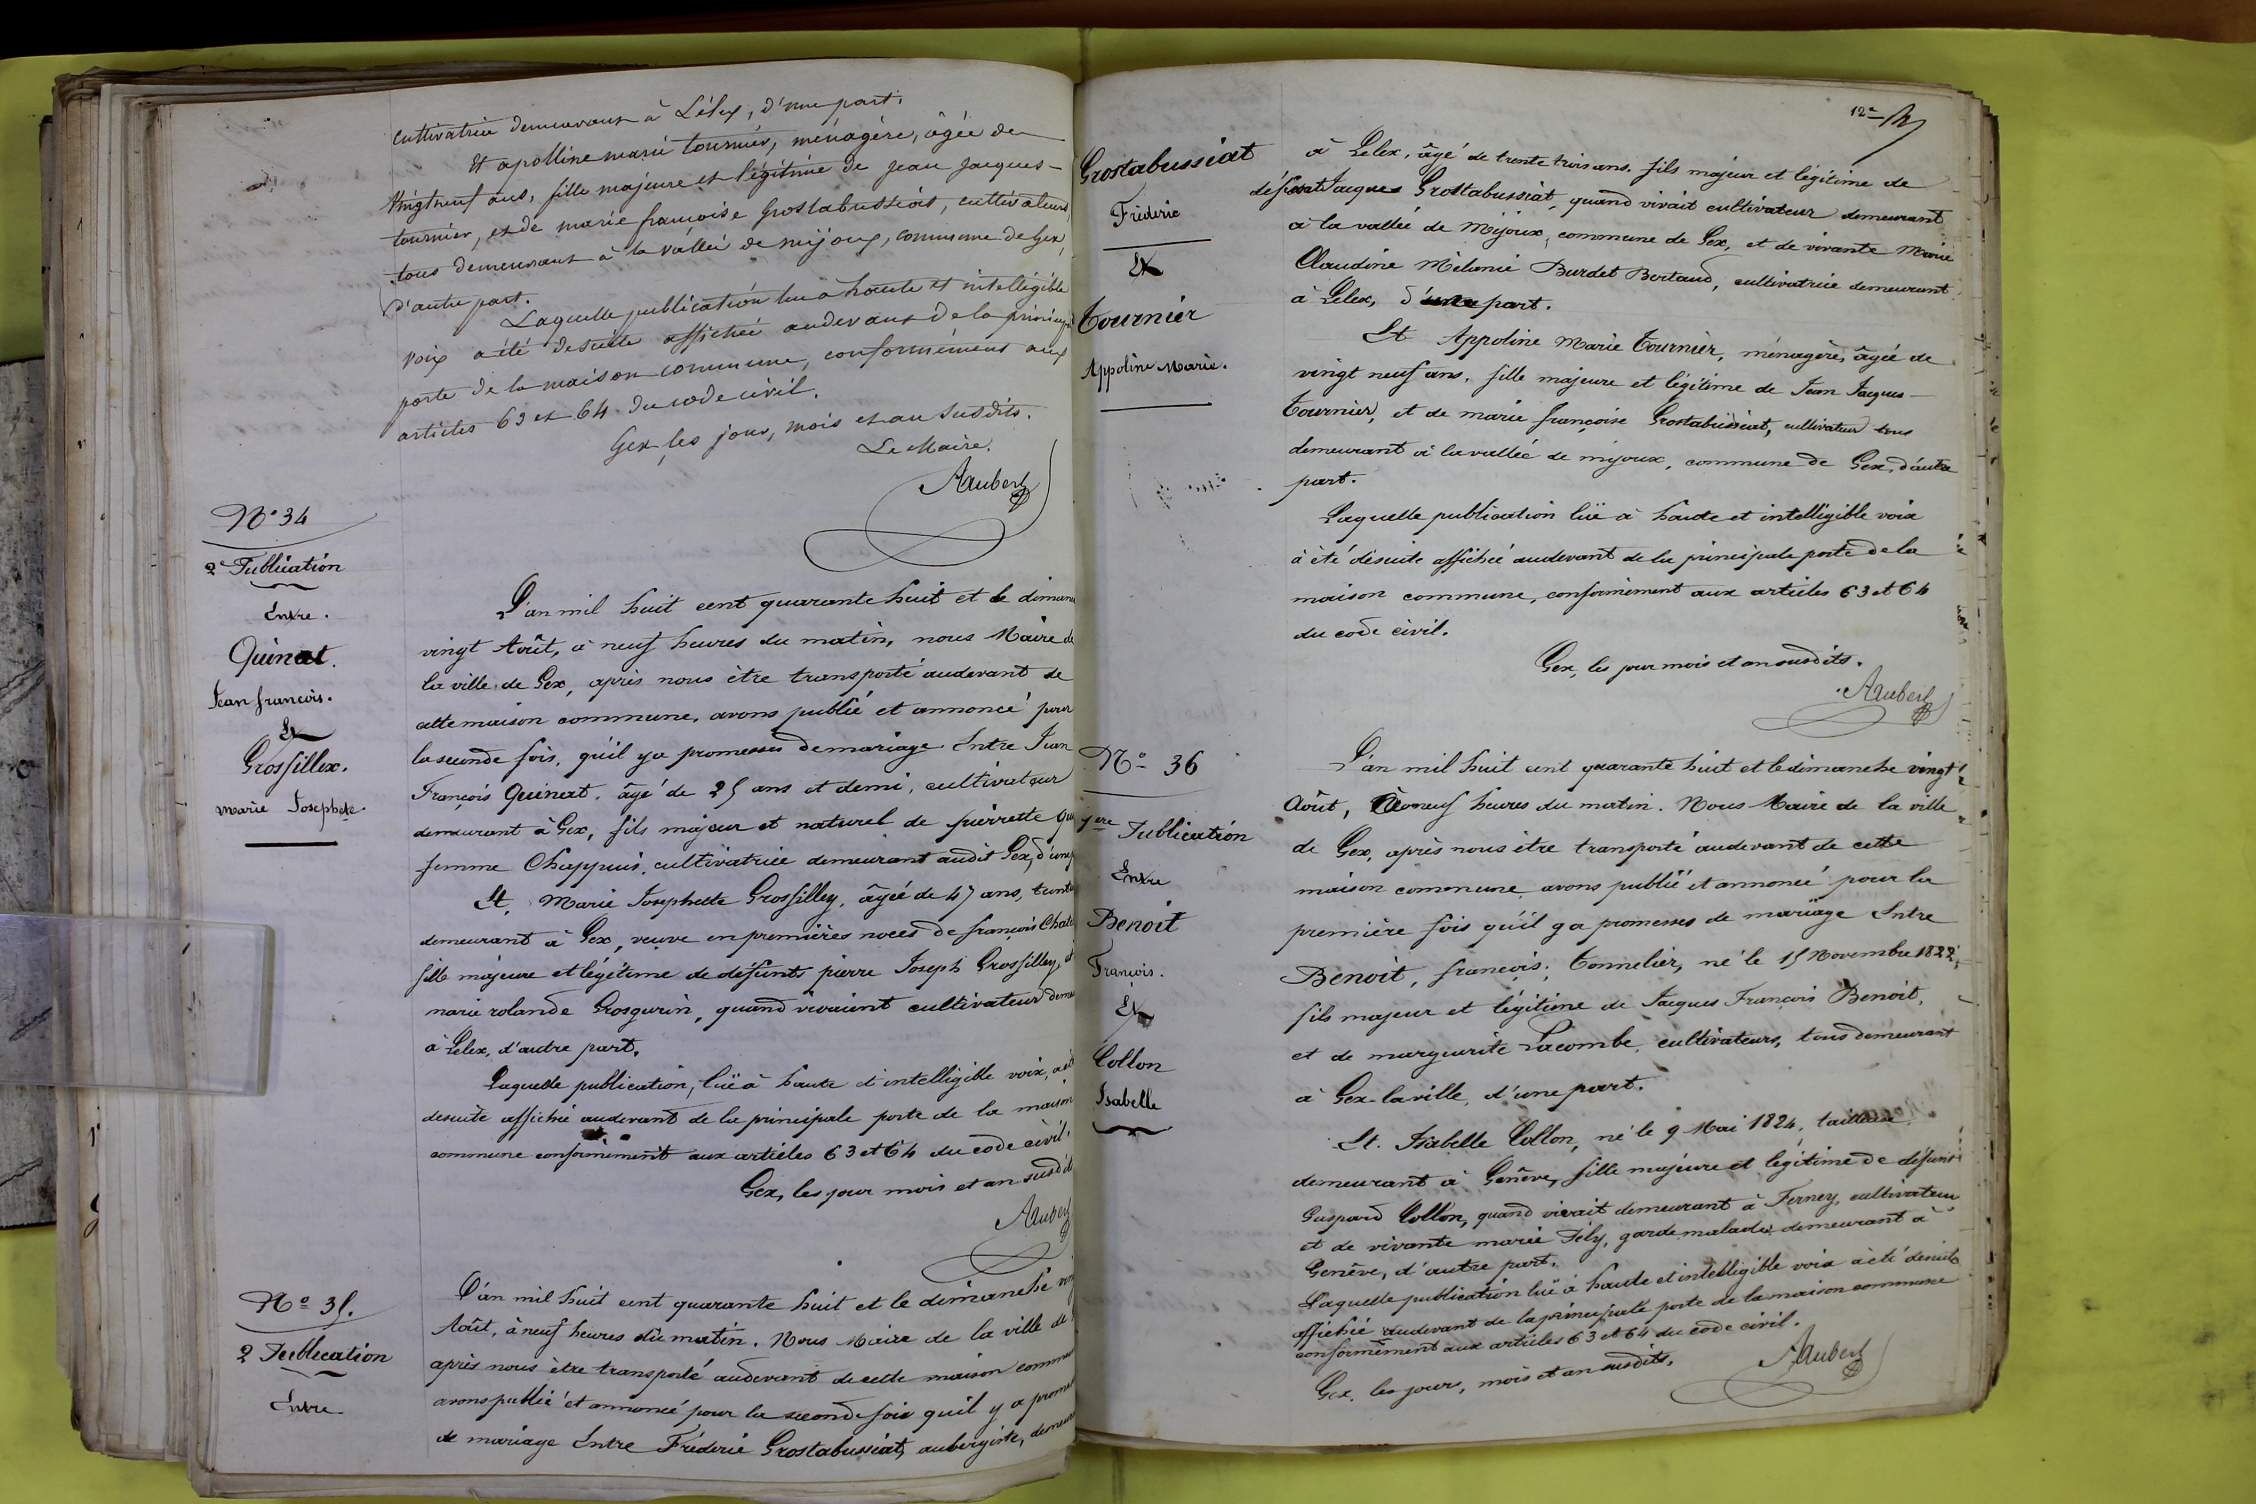 cultivatrice demeurant à Lélex, d'une part.
Et apolline marie tournier, ménagère, âgée de
vingt neuf ans, fille majeure et légitime de jean jacques
tournier, et de marie françoise Grostabussiat, cultivateurs
tous demeurant à la vallée de mijoux, commune de Gex,
d'autre part.
Laquelle publication lue à haute et intelligible
voix a été desuite affichée audevant de la principale
porte de la maison commune, conformément aux
articles 63 et 64 du code civil.
Gex, les jour, mois et an susdits.
Le Maire.
Aubert
N° 34
2e Publication
Entre.
Quinat.
Jean françois.
Et
Grosfillex.
marie Josephete.
L'an mil huit cent quarante huit et le diman
vingt Août, à neuf heures du matin, nous Maire de
la ville de Gex, après nous être transporté audevant de
cette maison commune, avons publié et annoncé pour
la seconde fois, qu'il y a promesses de mariage Entre Jean
François Quinat, âgé de 25 ans et demi, cultivateur
demeurant à Gex, fils majeur et naturel de pierrette Qui
femme Chappuis, cultivatrice demeurant audit Gex, d'une
Et, Marie Josephete Grosfilley, âgée de 47 ans,
demeurant à Gex, veuve en premières noces de françois
fille majeure et légitime de défunts pierre Joseph Grosfilley, et
marie rolande Grosgurin, quand vivaient cultivateur deme
à Lelex, d'autre part.
Laquelle publication, luë à haute et intelligible voix, a été
desuite affichée audevant de la principale porte de la maison
commune conformément aux articles 63 et 64 du code civil.
Gex, les jour mois et an susdits
Aubert
N° 35.
2 Publication
Entre
L'an mil huit cent quarante huit et le dimanche vin
Août, à neuf heures du matin. Nous Maire de la ville de
après nous être transporté audevant de cette maison commu
avons publié et annoncé pour la seconde fois qu'il y a prome
de mariage Entre Fréderic Grostabussiat, aubergiste, demeur
12e
Grostabussiat
Fréderic
Et
Tournier
Appoline Marie.
à Lelex, âgé de trente trois ans, fils majeur et légitime de
défunt Jacques Grostabussiat, quand vivait cultivateur demeurant
à la vallée de Mijoux, commune de Gex, et de vivante Marie
Claudine Mélanie Burdet Bertaud, cultivatrice demeurant
à Lelex, d'une part.
Et Appoline Marie Tournier, ménagère, âgée de
vingt neuf ans, fille majeure et légitime de Jean Jacques
Tournier, et de marie françoise Grostabussiat, cultivateur tous
demeurant à la vallée de mijoux, commune de Gex, d'autre
part.
Laquelle publication luë à haute et intelligible voix
à été désuite affichée audevant de la principale porte de la
maison commune, conformément aux articles 63 et 64
du code civil.
Gex, les jour mois et an susdits.
Aubert
N° 36
1ere Publication
Entre
Benoit
François.
Et
Collon
Isabelle
L'an mil huit cent quarante huit et le dimanche vingt
Août, à neuf heures du matin. Nous Maire de la ville
de Gex, après nous être transporté audevant de cette
maison commune avons publié et annoncé pour la
première fois qu'il y a promesses de mariage Entre
Benoit, françois, tonnelier, né le 15 Novembre 1822,
fils majeur et légitime de Jacques François Benoit,
et de marguerite Lacombe, cultivateurs, tous demeurant
à Gex-la-ville, d'une part.
Et. Isabelle Collon, né le 9 Mai 1824, tailleuse,
demeurant à Genêve, fille majeure et légitime de défunt
Gaspard Collon, quand vivait demeurant à Ferney, cultivateur
et de vivante marie Fély, garde malade, demeurant à
Genêve, d'autre part.
Laquelle publication luë à haute et intelligible voix à été désuite
affichée audevant de la principale porte de la maison commune
conformément aux articles 63 et 64 du code civil.
Gex, les jours, mois et an susdits.
Aubert